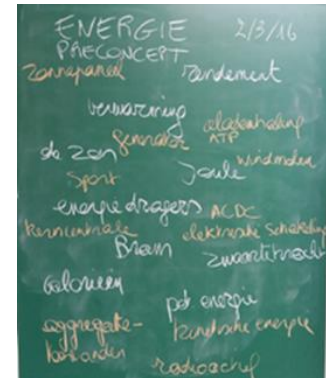 ENERGIE 2/3/16
PRECONCEPT
zonnepaneel rendement
verwarming
generator ademhaling
ATP
de zon windmolen
Sport Joule
energiedragers ACDC
kerncentrale elektrische schakeling
Brein zwaartekracht
Calorieën
pot. energie
aggregatie- kinetische energie
toestanden
radioactief